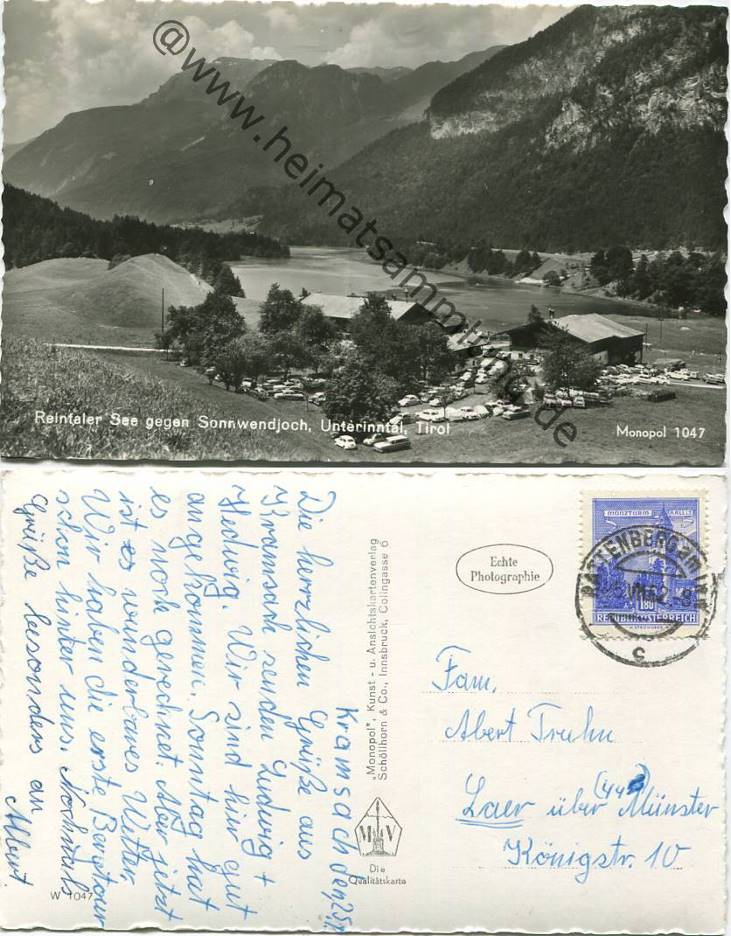 @www.heimatsammlung.de
Reintaler See gegen Sonnwendjoch, Unterinntal, Tirol
Monopol 1047
Kramsach den 25.
Die herzlichen Grüße aus
Kramsach senden Ludwig +
Hedwig. Wir sind hier gut
angekommen. Sonntag hat
es noch geregnet. Aber jetzt
ist es wunderbares Wetter.
Wir haben die erste Bergtour
schon hinter uns. Nochmals
Grüße besonders an
Albert
W 1047
"Monopol", Kunst - u. Ansichtskartenverlag
Schöllhorn & Co., Innsbruck, Colingasse 6
M V
Die
Qualitätskarte
Echte
Photographie
MÜNZTURM HALL I. T.
1.80
REPUBLIK ÖSTERREICH
RATTENBERG am INN
c
Fam.
Abert Truhn
Laer über (44) Münster
Königstr. 10